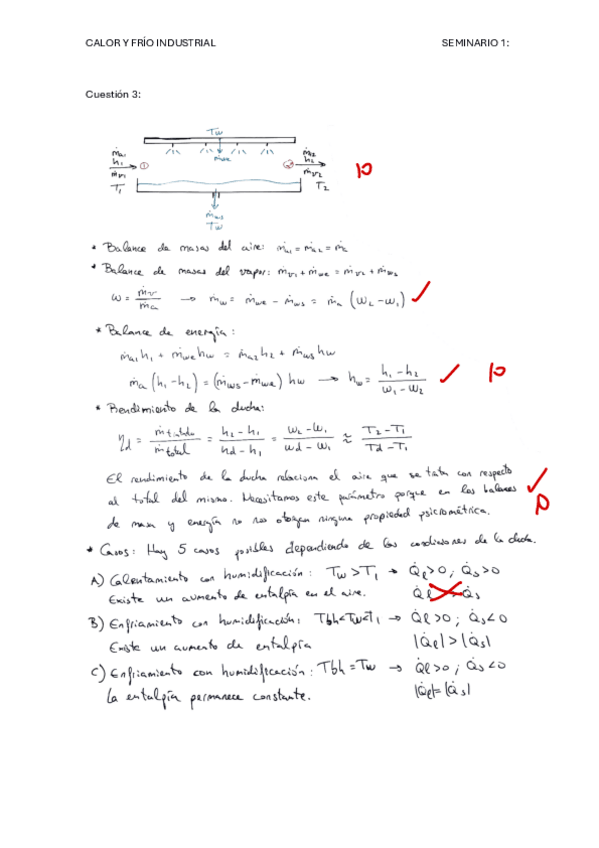 CALOR Y FRÍO INDUSTRIAL SEMINARIO 1:
Cuestión 3:
Tw
ṁa1 ṁwe ṁa2
h1 ① ② h2
ṁv1 ṁv2
T1 T2
ṁws
Tw
10
* Balance de masas del aire: ṁa1 = ṁa2 = ṁa
* Balance de masas del vapor: ṁv1 + ṁwe = ṁv2 + ṁws
ω = ṁv / ṁa → ṁw = ṁwe - ṁws = ṁa (ω2 - ω1) ✓
* Balance de energía:
ṁa1 h1 + ṁwe hw = ṁa2 h2 + ṁws hw
ṁa (h1 - h2) = (ṁws - ṁwe) hw → hw = (h1 - h2) / (ω1 - ω2) ✓ 10
* Rendimiento de la ducha:
ηd = ṁtratado / ṁtotal = (h2 - h1) / (hd - h1) = (ω2 - ω1) / (ωd - ω1) ≈ (T2 - T1) / (Td - T1)
El rendimiento de la ducha relaciona el aire que se trata con respecto
al total del mismo. Necesitamos este parámetro porque en los balances ✓
de masa y energía no nos otorgan ninguna propiedad psicrométrica.
* Casos: Hay 5 casos posibles dependiendo de las condiciones de la ducha.
A) Calentamiento con humidificación: Tw > T1 → Q̇l > 0 ; Q̇s > 0
Existe un aumento de entalpía en el aire. Q̇l Q̇s
B) Enfriamiento con humidificación: Tbh < Tw < T1 → Q̇l > 0 ; Q̇s < 0
Existe un aumento de entalpía |Q̇l| > |Q̇s|
C) Enfriamiento con humidificación: Tbh = Tw → Q̇l > 0 ; Q̇s < 0
La entalpía permanece constante. |Q̇l| = |Q̇s|